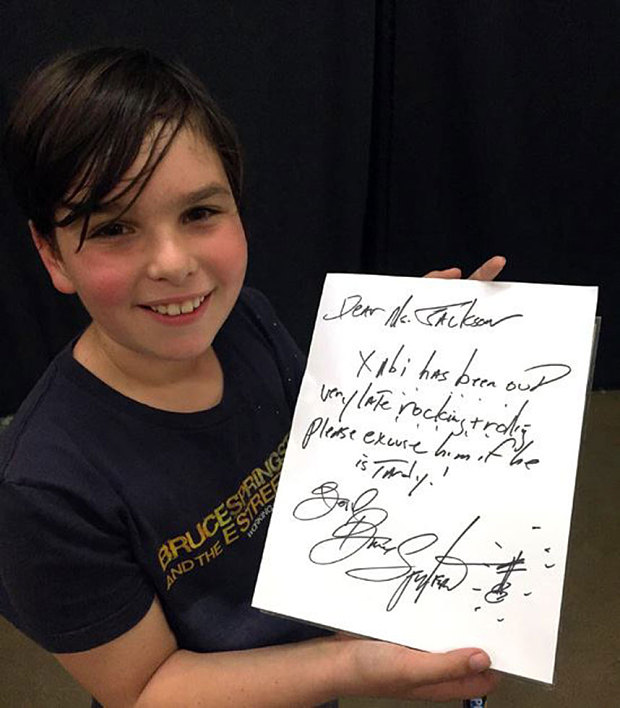 Dear Ms. Jackson
Xabi has been out
very late rocking + rolling
please excuse him if he
is Tardy!
Bruce Springsteen
BRUCE SPRINGST
AND THE E STREE
WORKING